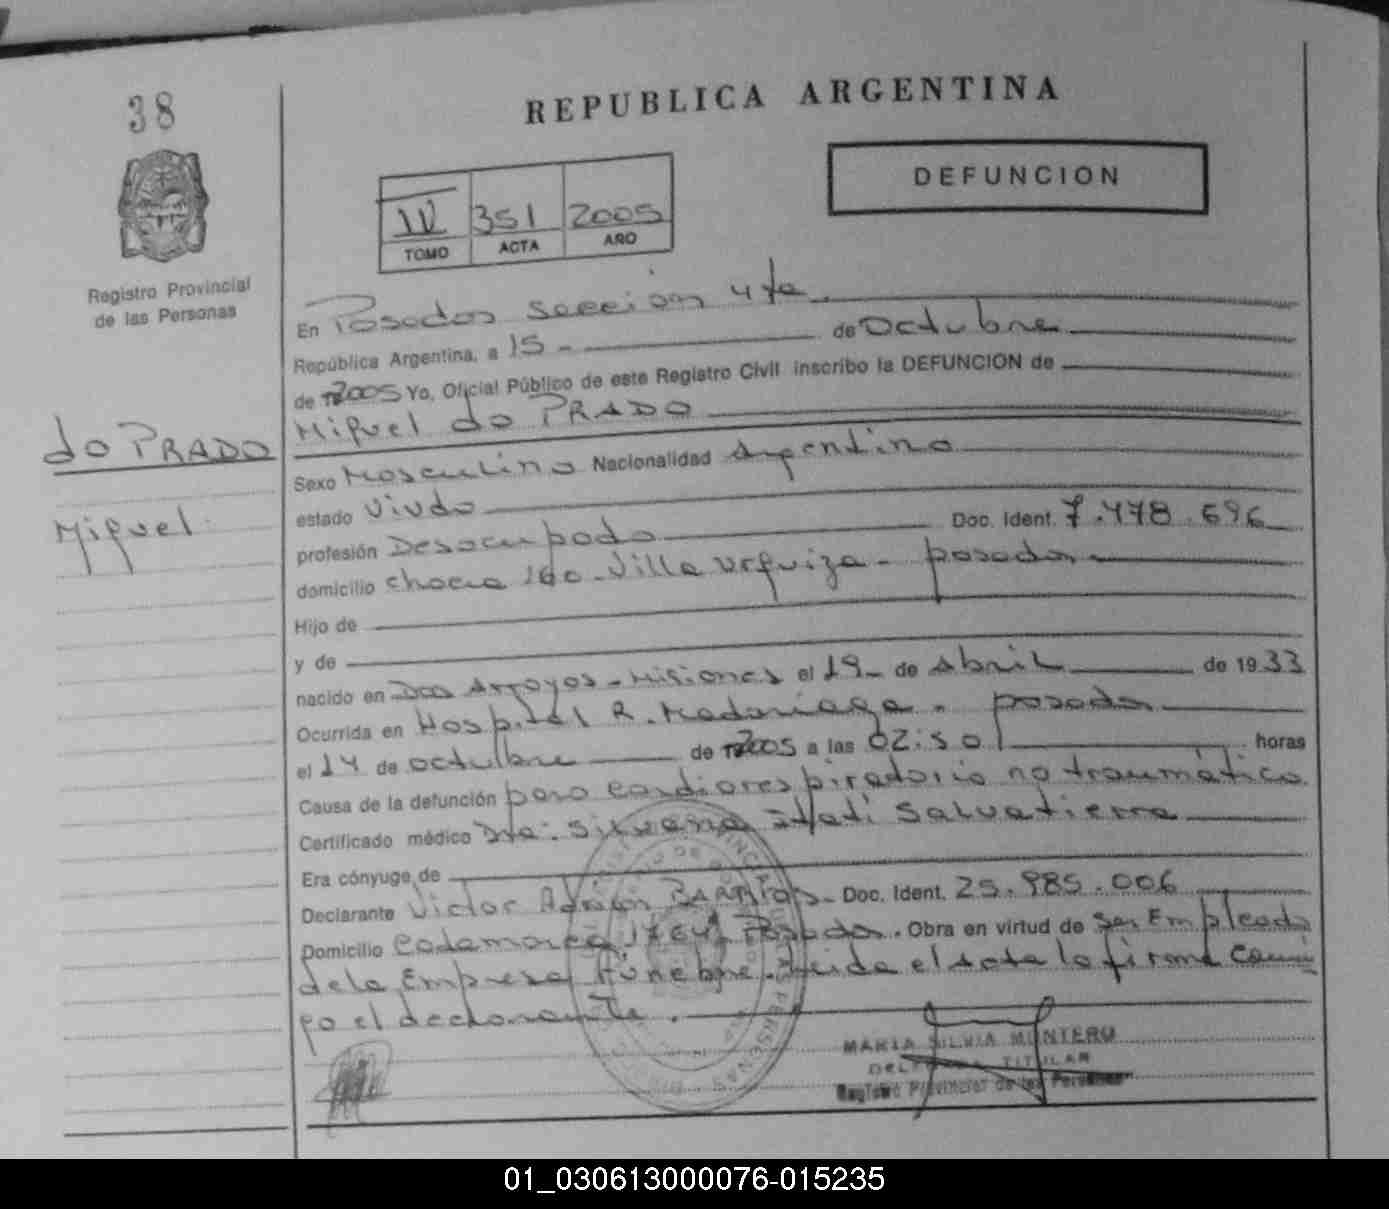 38
REPUBLICA ARGENTINA
DEFUNCION
IV 351 2005
TOMO ACTA AÑO
Registro Provincial
de las Personas
En Posadas Sección 4ta.
República Argentina, a 15 - de Octubre
de 2005 Yo, Oficial Público de este Registro Civil inscribo la DEFUNCION de
Miguel do PRADO
do PRADO
Miguel
Sexo Masculino Nacionalidad Argentino
estado Viudo
profesión Desocupado Doc. Ident. 7.478.696
domicilio Chacra 160 - Villa Urquiza - Posadas
Hijo de
y de
nacido en Dos Arroyos - Misiones el 19 - de Abril de 1933
Ocurrida en Hospital R. Madariaga - Posadas
el 14 de octubre de 2005 a las 02:50 horas
Causa de la defunción paro cardiorespiratorio no traumático
Certificado médico Dra: Silvana Itatí Salvatierra
Era cónyuge de
Declarante Victor Adrian BARRIOS - Doc. Ident. 25.985.006
Domicilio Catamarca Posadas. Obra en virtud de ser Empleado
de la Empresa Fúnebre. Leida el Acta la firma conmi
go el declarante.
MARIA SILVIA MONTERO
DELEGADA TITULAR
Registro Provincial de las Personas
01_030613000076-015235